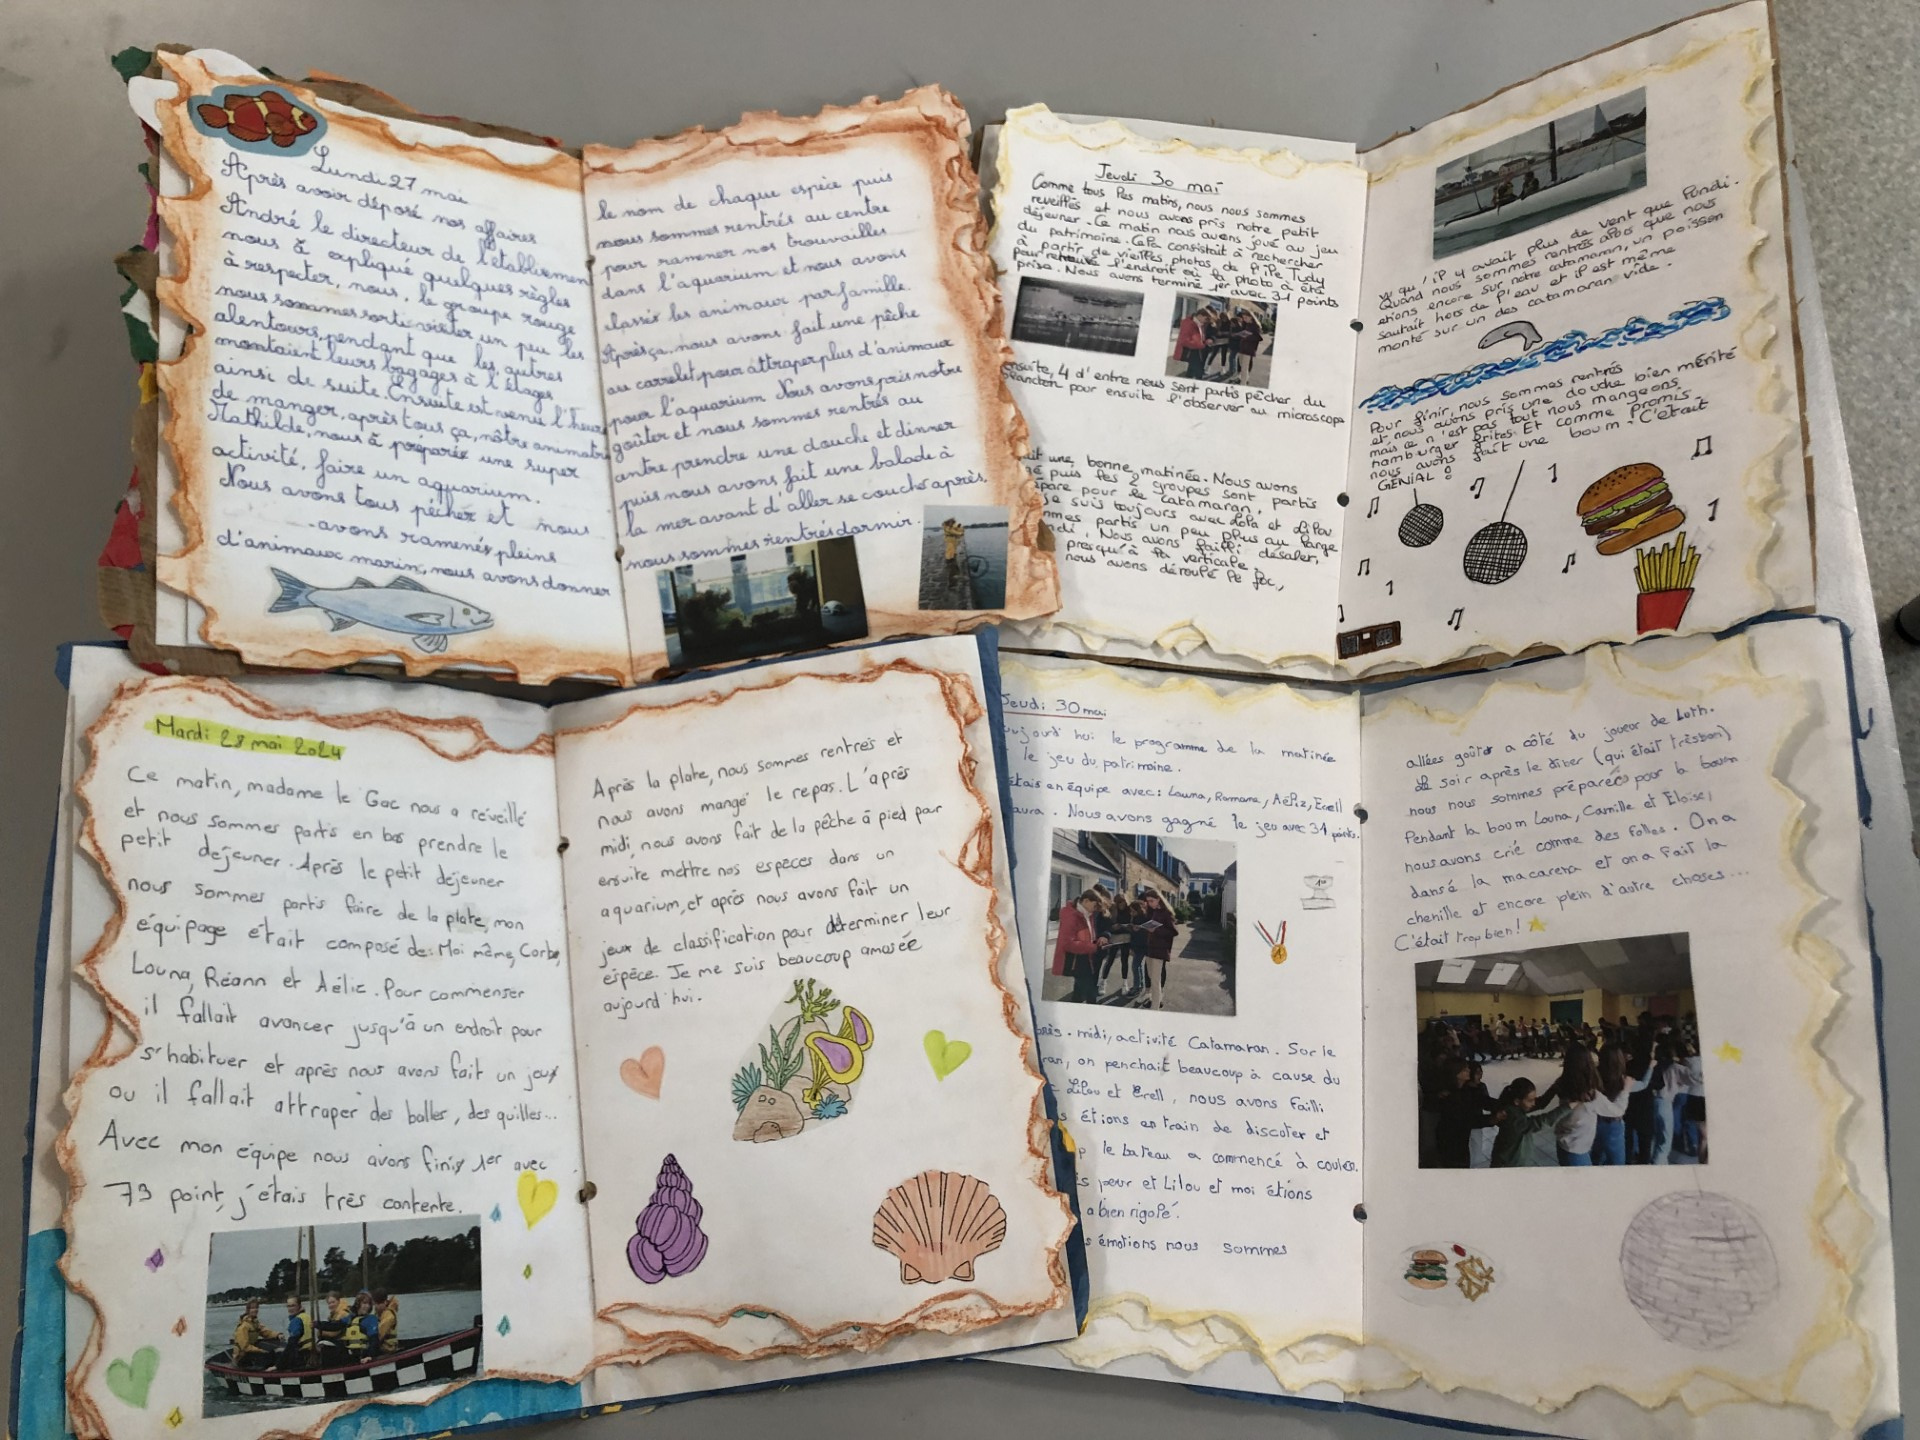 Lundi 27 mai
Après avoir déposé nos affaires
André le directeur de l'établissement
nous à expliqué quelques règles
à respecter, nous, le groupe rouge
nous sommes sorti visiter un peu les
alentours, pendant que les autres
montaient leurs bagages à l'étages
ainsi de suite. Ensuite est venue l'heure
de manger, après tous ça, nôtre animatri
Mathilde, nous à préparée une super
activité, faire un aquarium.
Nous avons tous pêcher et nous
-avons ramenés pleins
d'animaux marin, nous avons donner
le nom de chaque espèce puis
nous sommes rentrés au centre
pour ramener nos trouvailles
dans l'aquarium et nous avons
classés les animaux par famille.
Après ça, nous avons fait une pêche
au carrelet, pour attraper plus d'animaux
pour l'aquarium. Nous avons pris notre
goûter et nous sommes rentrés au
antre prendre une douche et dinner
puis nous avons fait une balade à
la mer avant d'aller se couché après,
nous sommes rentrés dormir.
Jeudi 30 mai
Comme tous les matins, nous nous sommes
reveillés et nous avons pris notre petit
déjeuner. Ce matin nous avons joué au jeu
du patrimoine. Cela consistait à rechercher
à partir de vieilles photos de l'île Tudy
pour retrouve l'endroit où la photo a été
prise. Nous avons terminé 1er avec 31 points
ensuite, 4 d'entre nous sont partis pêcher du
plancton pour ensuite l'observer au microscope
ait une bonne matinée. Nous avons
gé puis les 2 groupes sont partis
épare pour le catamaran,
je suis toujours avec Lola et Lilou
mmes partis un peu plus au large
ndi. Nous avons failli désaler,
presqu'à la verticale,
nous avons déroulé le foc,
vu qu'il y avait plus de vent que lundi.
Quand nous sommes rentrés alors que nous
etions encore sur notre catamaran, un poisson
sautait hors de l'eau et il est même
monté sur un des catamaran vide.
Pour finir, nous sommes rentrés
et nous avons pris une douche bien mérité
mais ce n'est pas tout nous mangeons
hamburger frites. Et comme promis
nous avons fait une boum. C'était
GENIAL !
Mardi 28 mai 2024
Ce matin, madame le Gac nous a réveillé
et nous sommes partis en bas prendre le
petit dejeuner. Après le petit dejeuner
nous sommes partis faire de la plate, mon
équipage était composé de: Moi même,
Louna, Réann et Aélic. Pour commenser
il fallait avancer jusqu'à un endroit pour
s'habituer et après nous avons fait un jeu
ou il fallait attraper des balles, des quilles...
Avec mon équipe nous avons finis 1er avec
73 point, j'étais très contente.
Après la plate, nous sommes rentrés et
nous avons mangé le repas. L'après
midi, nous avons fait de la pêche à pied par
ensuite mettre nos espèces dans un
aquarium, et après nous avons fait un
jeux de classification pour déterminer leur
espèce. Je me suis beaucoup amusée
aujourd'hui.
Jeudi 30 mai
aujourd'hui le programme de la matinée
le jeu du patrimoine.
étais en équipe avec: Louna, Romane, Erell
aura. Nous avons gagné le jeu avec 31 points.
1er
près-midi, activité Catamaran. Sur le
ran, on penchait beaucoup à cause du
Lilou et Erell, nous avons failli
étions en train de discuter et
p le bateau a commencé à couler.
s peur et Lilou et moi étions
a bien rigolé.
s émotions nous sommes
allées goûter a côté du joueur de Luth.
Le soir après le diner (qui était très bon)
nous nous sommes préparées pour la boum
Pendant la boum Louna, Camille et Eloïse,
nous avons crié comme des folles. On a
dansé la macarena et on a fait la
chenille et encore plein d'autre choses...
C'était trop bien!